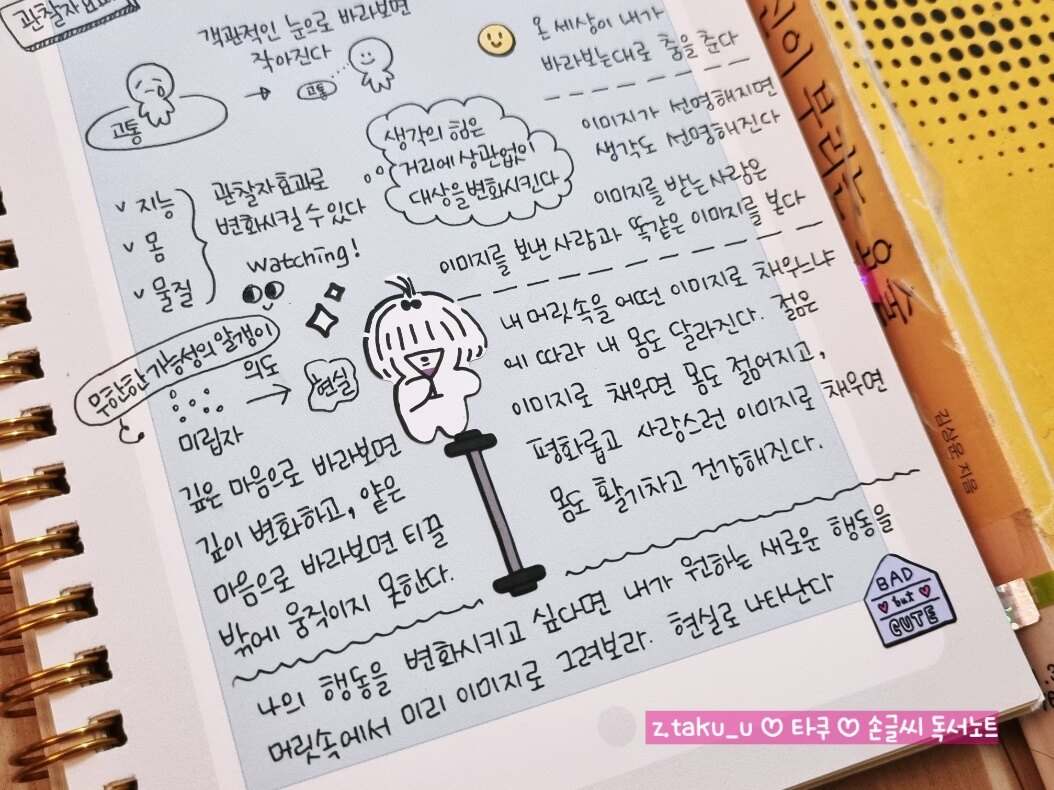 관찰자효과
객관적인 눈으로 바라보면
작아진다
고통
고통
지능
몸
물질
관찰자효과로
변화시킬 수 있다
watching!
무한한 가능성의 알갱이
미립자
의도
현실
깊은 마음으로 바라보면
깊이 변화하고, 얕은
마음으로 바라보면 티끌
밖에 움직이지 못한다.
온 세상이 내가
바라보는대로 춤을 춘다
생각의 힘은
거리에 상관없이
대상을 변화시킨다
이미지가 선명해지면
생각도 선명해진다
이미지를 받는 사람은
이미지를 보낸 사람과 똑같은 이미지를 본다
내 머릿속을 어떤 이미지로 채우느냐
에 따라 내 몸도 달라진다. 젊은
이미지로 채우면 몸도 젊어지고,
평화롭고 사랑스런 이미지로 채우면
몸도 활기차고 건강해진다.
나의 행동을 변화시키고 싶다면 내가 원하는 새로운 행동을
머릿속에서 미리 이미지로 그려보라. 현실로 나타난다
BAD
but
CUTE
신이 부리는 요술
김상운 지음
z.taku_u ♡ 타쿠 ♡ 손글씨 독서노트